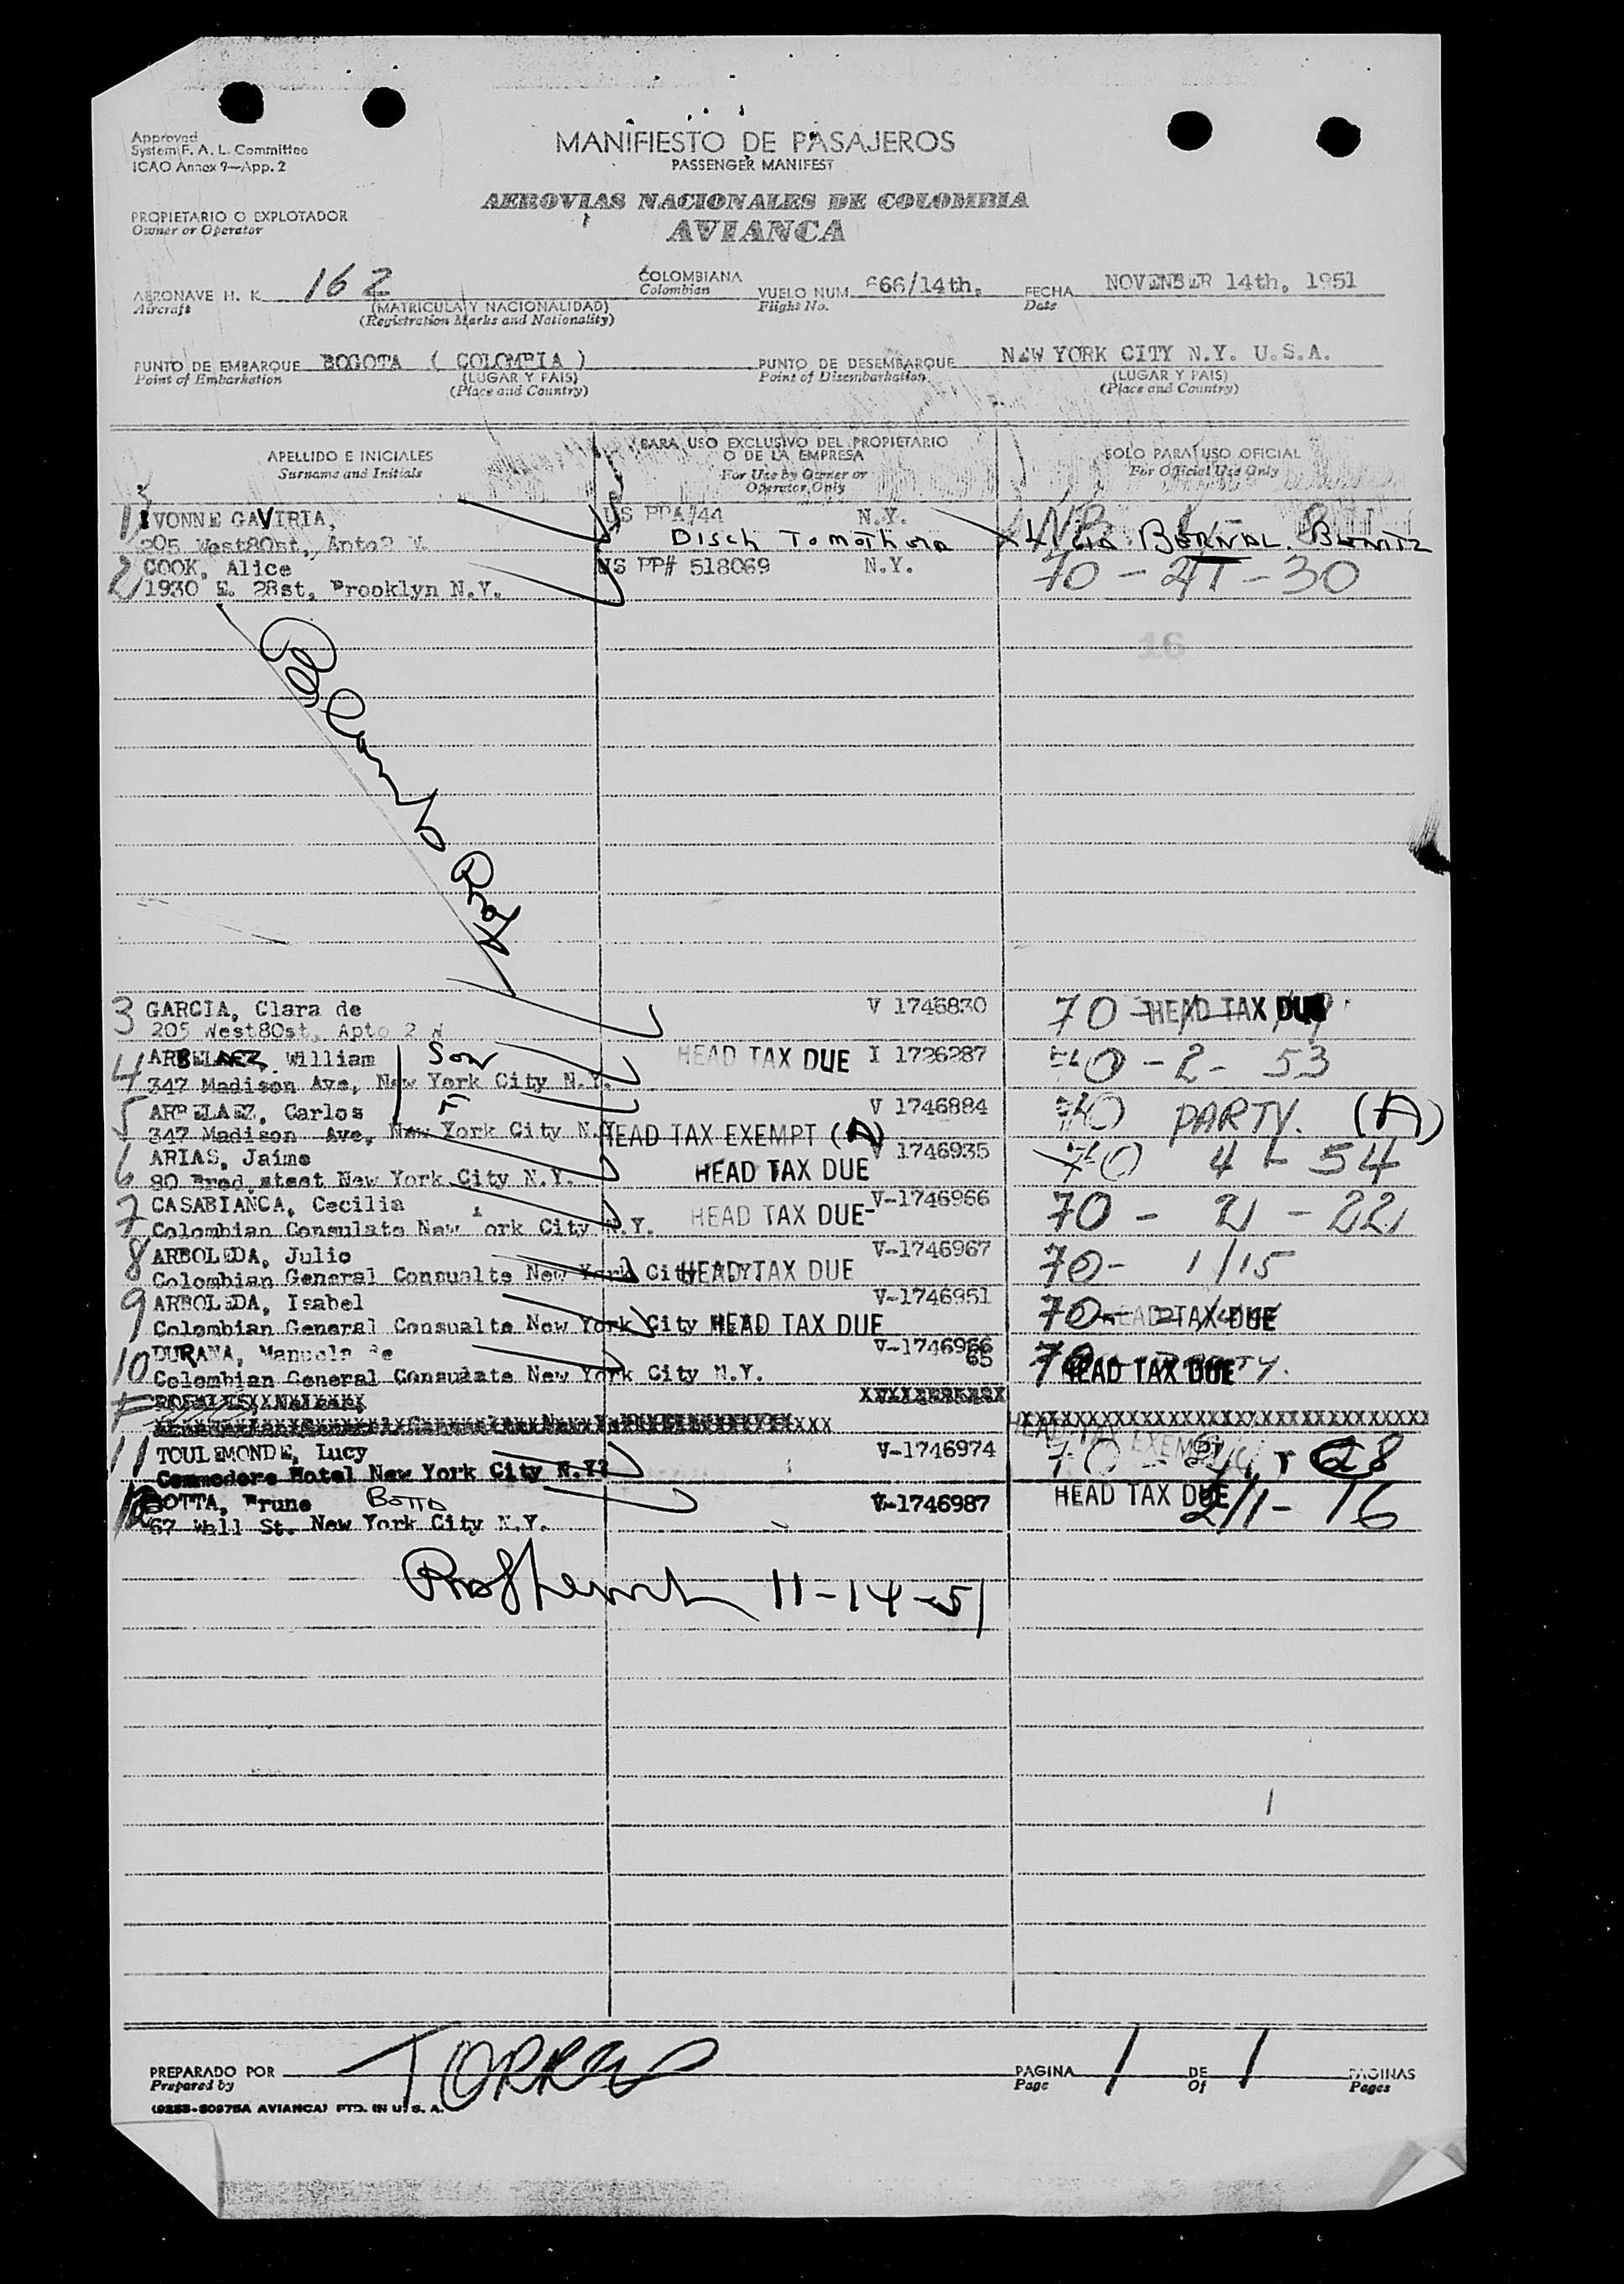 Approved
System F. A. L. Committee
ICAO Annex 9—App. 2
MANIFIESTO DE PASAJEROS
PASSENGER MANIFEST
PROPIETARIO O EXPLOTADOR
Owner or Operator
AEROVIAS NACIONALES DE COLOMBIA
AVIANCA
AERONAVE H. K. 162 COLOMBIANA VUELO NUM. 666/14th. FECHA NOVENBER 14th, 1951
Aircraft (MATRICULA Y NACIONALIDAD) Colombian Flight No. Date
(Registration Marks and Nationality)
PUNTO DE EMBARQUE BOGOTA ( COLOMBIA ) PUNTO DE DESEMBARQUE NEW YORK CITY N.Y. U.S.A.
Point of Embarkation (LUGAR Y PAIS) Point of Disembarkation (LUGAR Y PAIS)
(Place and Country) (Place and Country)
APELLIDO E INICIALES PARA USO EXCLUSIVO DEL PROPIETARIO SOLO PARA USO OFICIAL
Surname and Initials O DE LA EMPRESA For Official Use Only
For Use by Owner or
Operator Only
1 IVONNE GAVIRIA, US N.Y.
205 West80st, Disch BERNAL
2 COOK, Alice US PP# 518069 N.Y. 70 - 41 - 30
1930 E. 28st, Brooklyn N.Y.
16
3 GARCIA, Clara de V 1746830 70 HEAD TAX DUE
205 West80st, Apto 2 W
4 ARBELAEZ, William Son HEAD TAX DUE I 1726287 70 - 2 - 53
347 Madison Ave, New York City N.Y.
5 ARBELAEZ, Carlos F V 1746884 70 PARTY. (A)
347 Madison Ave, New York City N.Y. HEAD TAX EXEMPT (A)
6 ARIAS, Jaime V 1746935 70 4 - 54
80 Brod steet New York City N.Y. HEAD TAX DUE
7 CASABIANCA, Cecilia V-1746966 70 - 21 - 22
Colombian Consulate New York City N.Y. HEAD TAX DUE
8 ARBOLEDA, Julio V-1746967 70 - 1/15
Colombian General Consualte New York City N.Y. HEAD TAX DUE
9 ARBOLEDA, Isabel V-1746951 70 HEAD TAX DUE
Colombian General Consualte New York City HEAD TAX DUE
10 DURANA, Manuela de V-1746966 70
65
Colombian General Consulate New York City N.Y. HEAD TAX DUE
HEAD TAX EXEMPT
11 TOULEMONDE, Lucy V-1746974 70
Commodore Hotel New York City N.Y?
12 BOTTA, Brune BOTTA V-1746987 HEAD TAX DUE 2/1 - 16
67 Wall St. New York City N.Y.
11-14-51
PREPARADO POR TORRES PAGINA 1 DE 1 PAGINAS
Prepared by Page Of Pages
(9233-80975A AVIANCA) PTD. IN U. S. A.